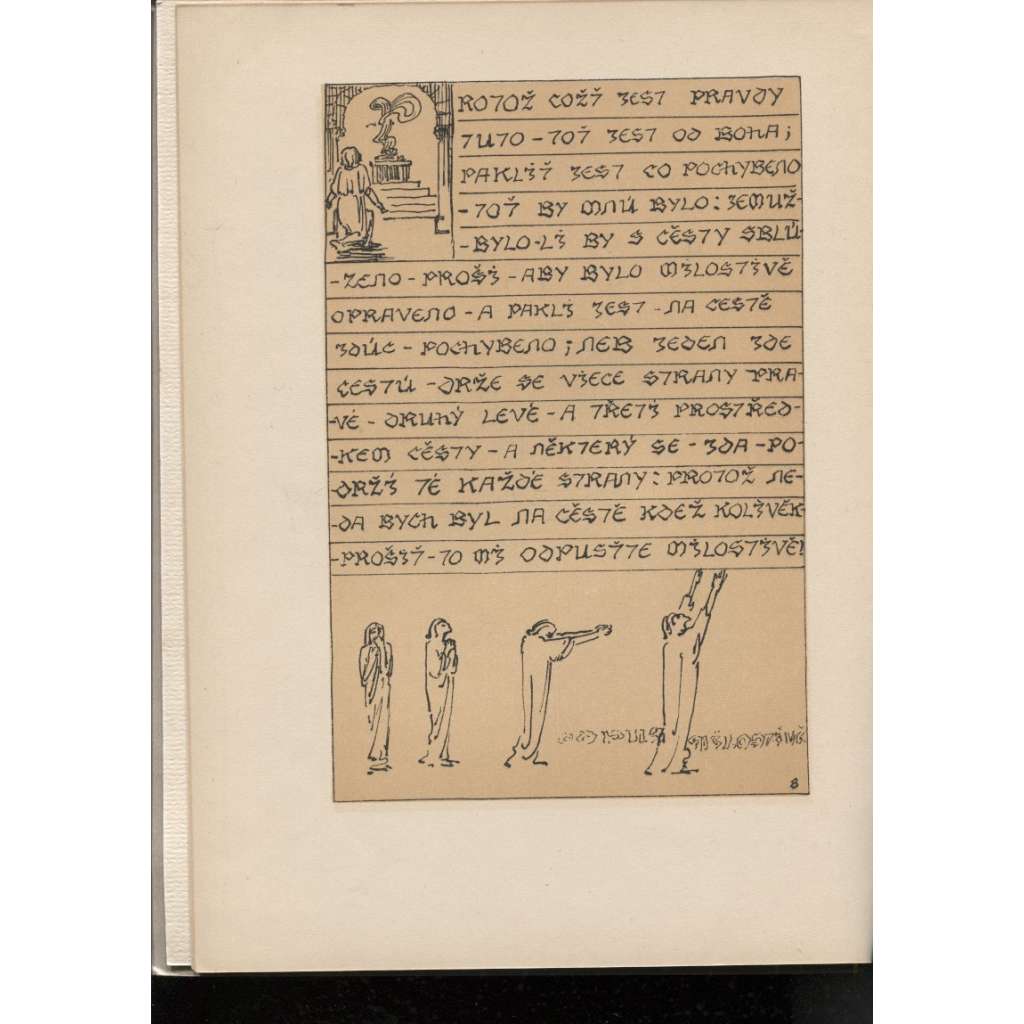 ROTOŽ COŽŤ JEST PRAVDY
TUTO - TOŤ JEST OD BOHA;
PAKLIŤ JEST CO POCHYBENO
- TOŤ BY MNÚ BYLO: JEMUŽ-
- BYLO-LI BY S CĚSTY SBLÚ-
- ZENO - PROŠI - ABY BYLO MILOSTIVĚ
OPRAVENO - A PAKLI JEST - NA CESTĚ
JDÚC - POCHYBENO; NEB JEDEN JDE
CESTÚ - DRŽE SE VIECE STRANY PRA-
-VÉ - DRUHÝ LEVÉ - A TŘETÍ PROSTŘED-
-KEM CĚSTY - A NĚKTERÝ SE - JDA - PO-
-DRŽÍ TÉ KAŽDÉ STRANY: PROTOŽ NE-
-DA BYCH BYL NA CĚSTĚ KDEŽ KOLIVĚK-
- PROŠIŤ - TO MI ODPUSŤTE MILOSTIVĚ!
MILOSTIVĚ
8